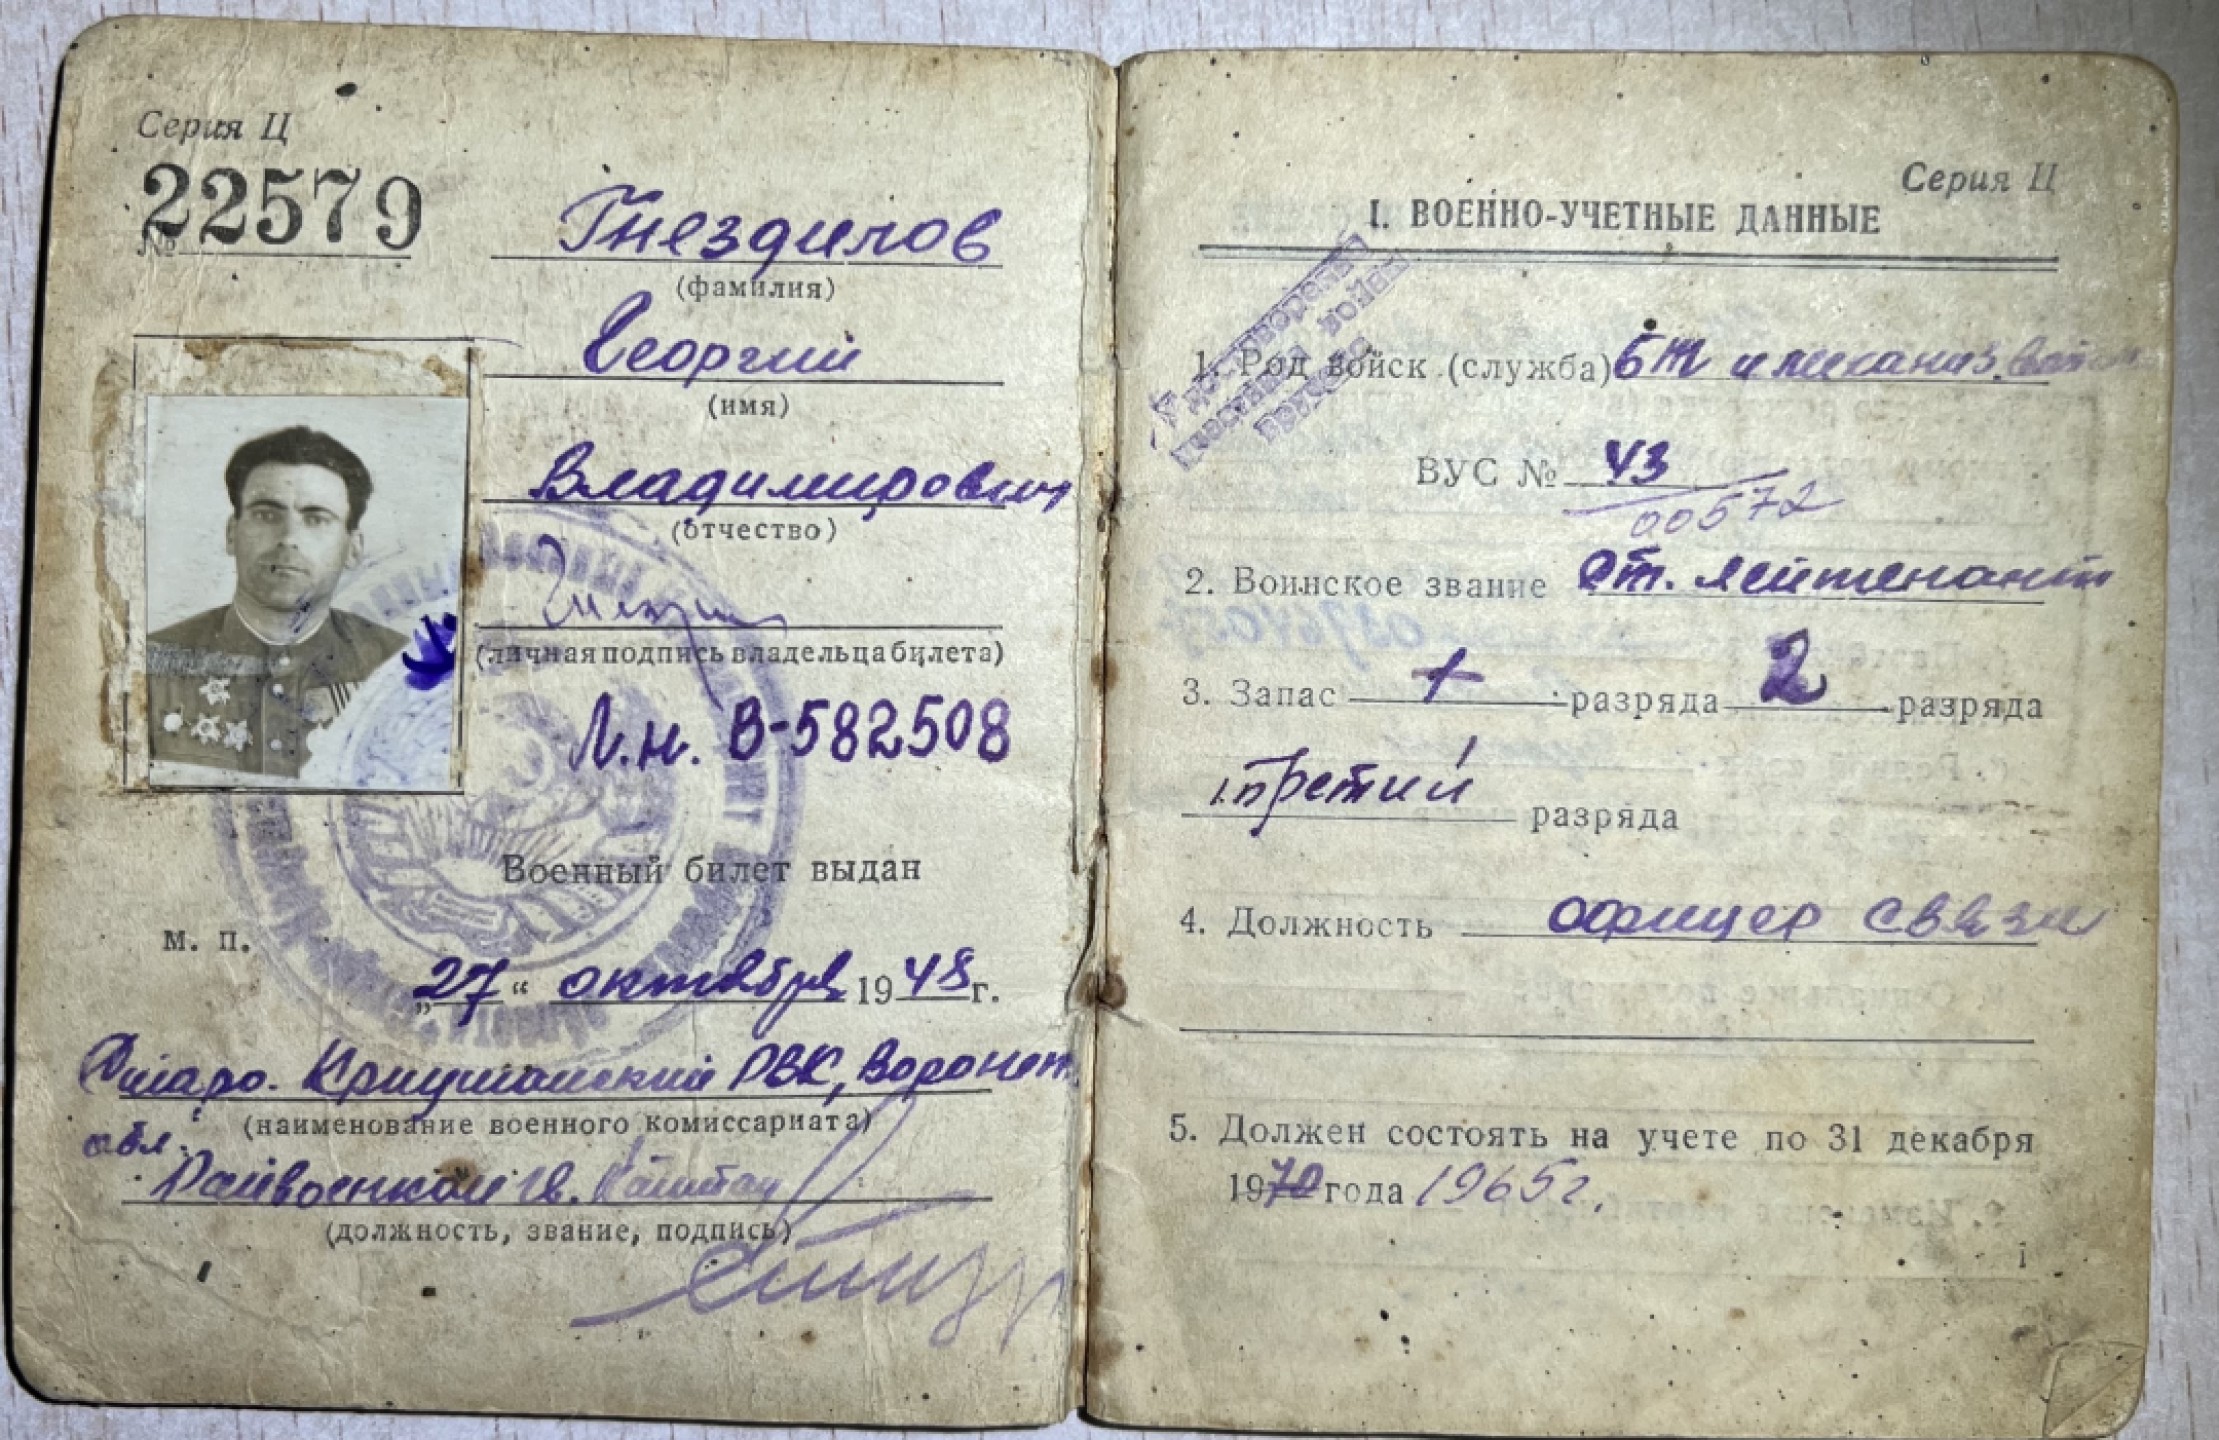 Серия Ц
№ 22579
Гнездилов
(фамилия)
Георгий
(имя)
Владимирович
(отчество)
(личная подпись владельца билета)
Л.н. В-582508
Военный билет выдан
м. п.
„27“ октября 1948 г.
Старо. Криушанский РВК, Воронеж.
(наименование военного комиссариата)
обл.
Райвоенком гв. Капитан
(должность, звание, подпись)
Серия Ц
I. ВОЕННО-УЧЕТНЫЕ ДАННЫЕ
Удостоверение
участника войны
вручено
1. Род войск (служба) БТ и механиз.
ВУС № 43
00572
2. Воинское звание Ст. лейтенант
3. Запас 1 разряда 2 разряда
третий разряда
4. Должность офицер связи
5. Должен состоять на учете по 31 декабря
1970 года 1965г.
1